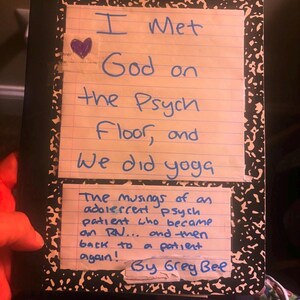 I Met
God on
the Psych
Floor, and
We did yoga
The musings of an
adolescent psych
patient who became
an RN... and then
back to a patient
again!
By Greg Bee